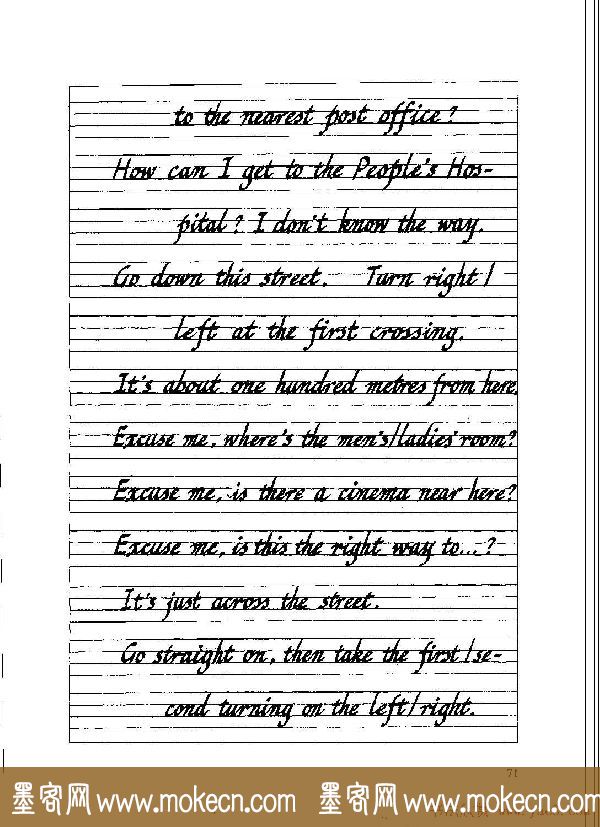 to the nearest post office?
How can I get to the People's Hos-
pital? I don't know the way.
Go down this street. Turn right/
left at the first crossing.
It's about one hundred metres from here.
Excuse me, where's the men's/ladies' room?
Excuse me, is there a cinema near here?
Excuse me, is this the right way to...?
It's just across the street.
Go straight on, then take the first/se-
cond turning on the left/right.
71
墨客网 www.mokecn.com 墨客网 www.mokecn.com